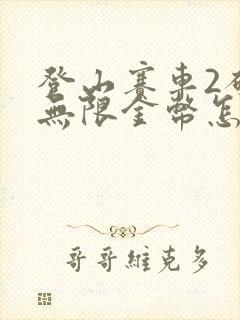 登山賽車2破
無限金幣怎
哥哥維克多